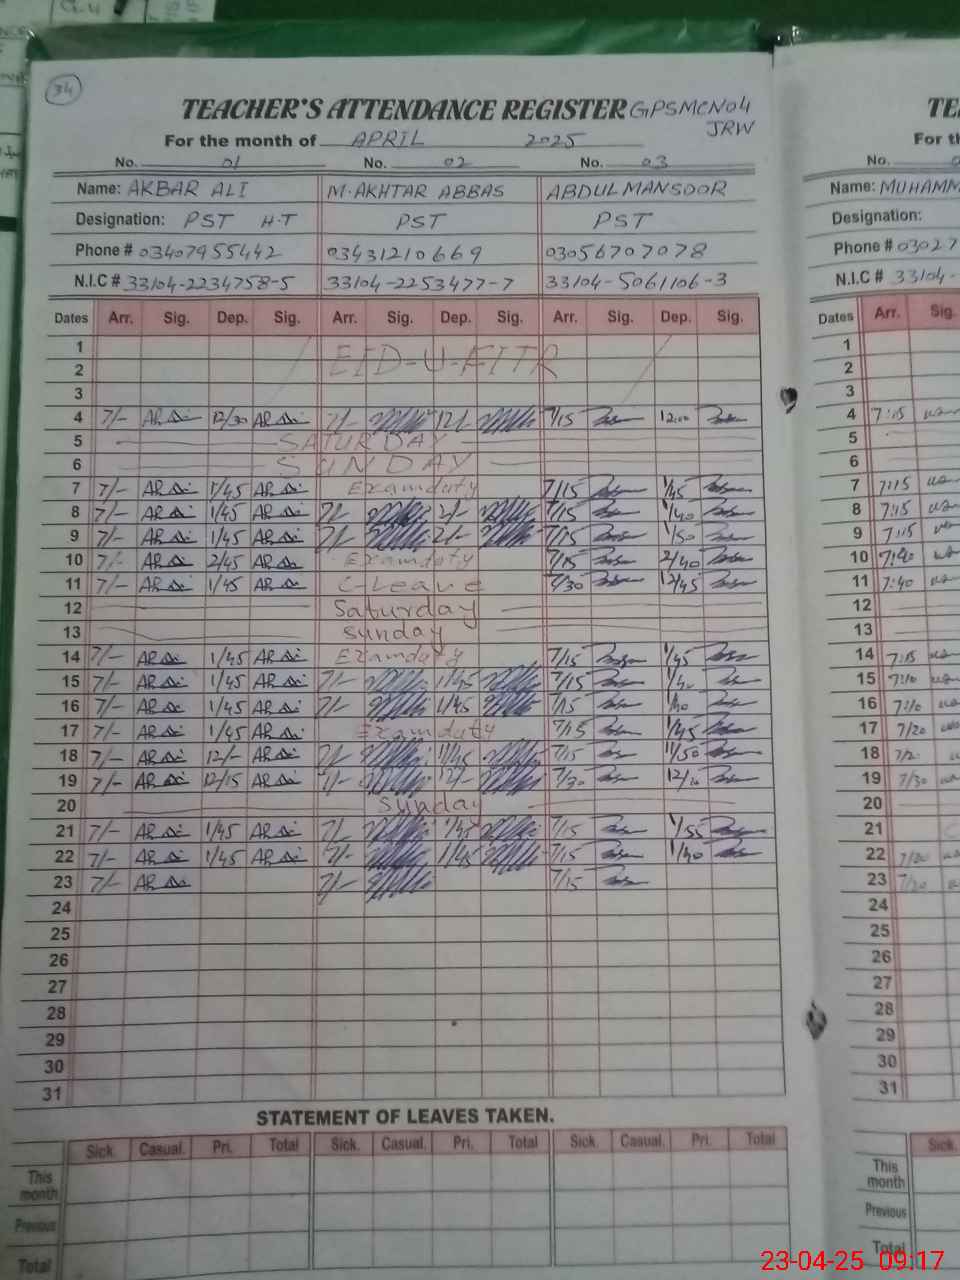 34
TEACHER'S ATTENDANCE REGISTER GPSMCN04
JRW
For the month of APRIL 2025
No. 01 No. 02 No. 03
Name: AKBAR ALI M.AKHTAR ABBAS ABDUL MANSOOR
Designation: PST H.T PST PST
Phone # 03407955442 03431210669 03056707078
N.I.C # 33104-2234758-5 33104-2253477-7 33104-5061106-3
Dates Arr. Sig. Dep. Sig. Arr. Sig. Dep. Sig. Arr. Sig. Dep. Sig.
1 EID-U-FITR
2
3
4 7/- 12/30 7/- 12/- 7/15 12:00
5 SATURDAY
6 SUNDAY
7 7/- 1/45 Examduty 7/15 1/45
8 7/- 1/45 7/- 2/- 7/15 1/40
9 7/- 1/45 7/- 2/- 7/15 1/50
10 7/- 2/45 Examduty 7/15 2/40
11 7/- 1/45 C-Leave 7/30 12/45
12 Saturday
13 sunday
14 7/- 1/45 Examduty 7/15 1/45
15 7/- 1/45 7/- 1/45 7/15
16 7/- 1/45 7/- 1/45 7/15
17 7/- 1/45 Examduty 7/15 1/45
18 7/- 12/- 7/- 11/45 7/15 11/50
19 7/- 12/15 7/- 12/- 7/30
20 sunday
21 7/- 1/45 7/- 1/45 7/15 1/55
22 7/- 1/45 7/- 1/45 7/15 1/40
23 7/- 7/- 7/15
24
25
26
27
28
29
30
31
STATEMENT OF LEAVES TAKEN.
Sick. Casual. Pri. Total Sick. Casual. Pri. Total Sick. Casual. Pri. Total
This month
Previous
Total
TE
For th
No.
Name: MUHAMM
Designation:
Phone # 03027
N.I.C # 33104-
Dates Arr. Sig.
1
2
3
4 7:15
5
6
7 7:15
8 7:15
9 7:15
10 7:40
11 7:40
12
13
14 7:15
15 7:10
16 7:10
17 7/20
18
19 7/30
20
21
22 7/20
23 7/20
24
25
26
27
28
29
30
31
Sick.
This month
Previous
Total
23-04-25 09:17